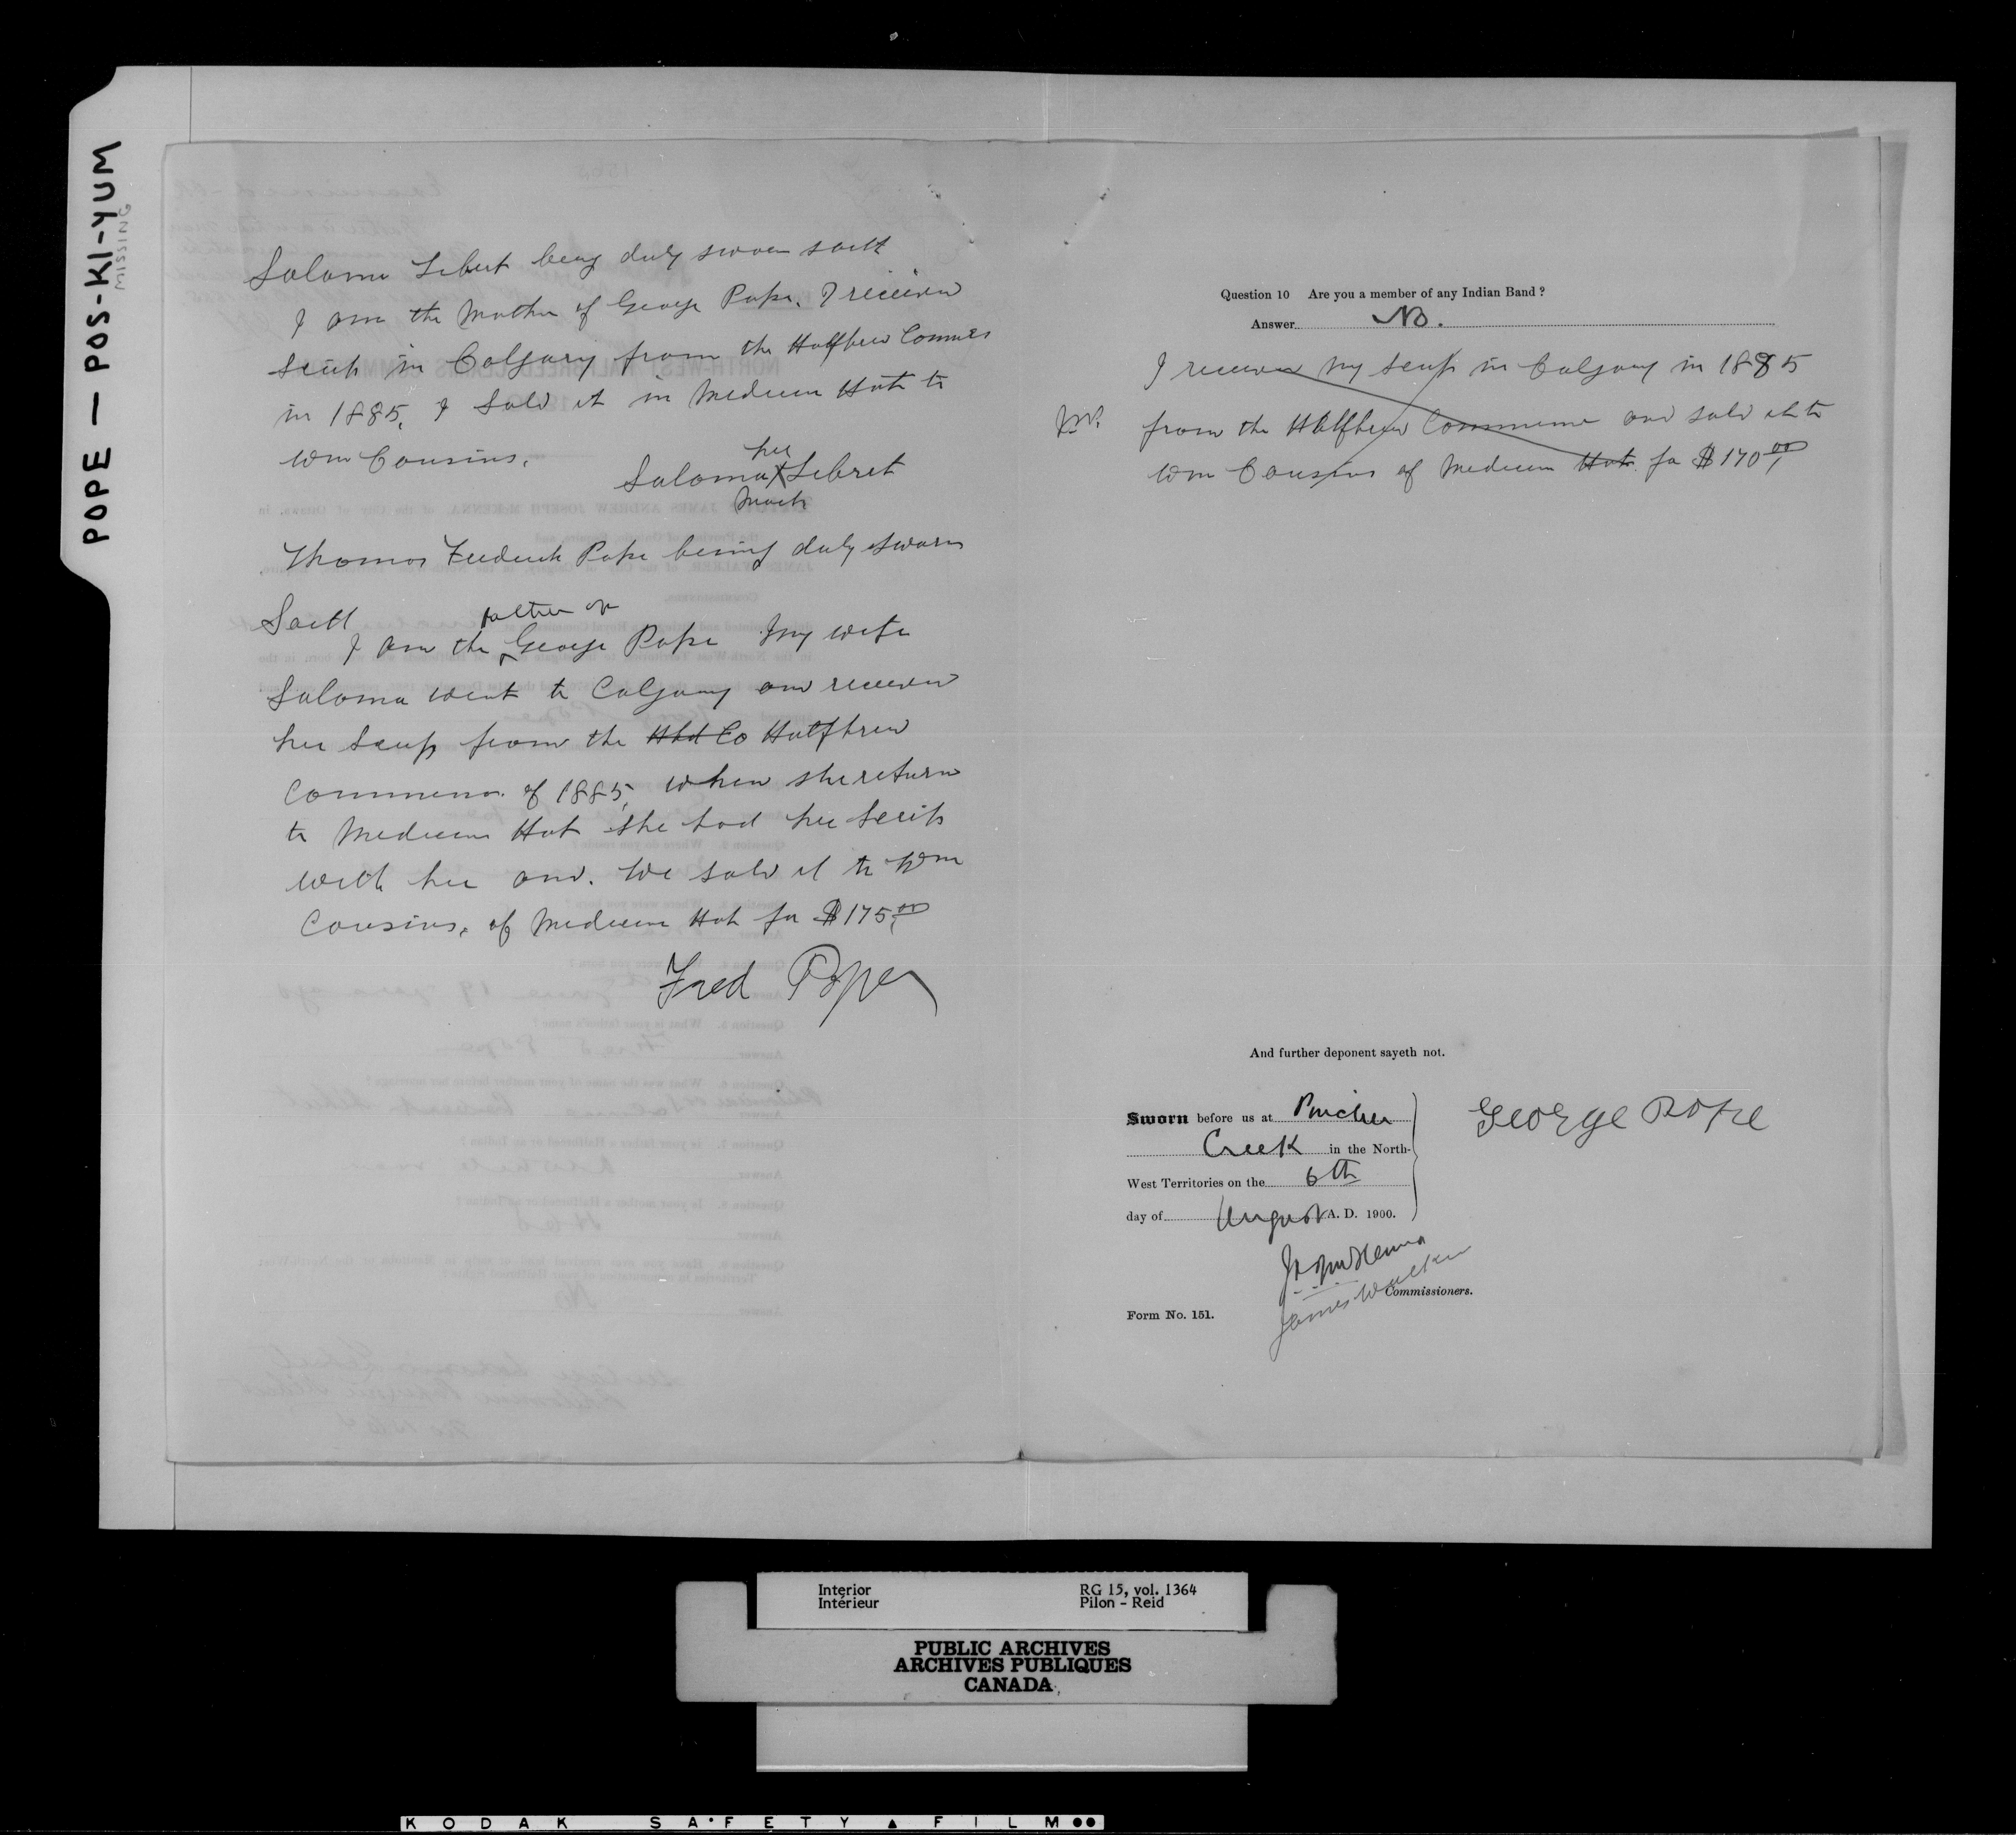 POPE — POS-KI-YUM
MISSING
Saloma Lebret being duly sworn saith
I am the Mother of George Pope. I received
Scrip in Calgary from the Halfbreed Commis
in 1885, I sold it in Medicine Hat to
Wm Cousins.
her
Saloma X Lebret
Mark
Thomas Frederick Pope being duly sworn
Saith
father of
I am the ^ George Pope My wife
Saloma went to Calgary and received
her Scrip from the Hbd Co Halfbreed
Commission of 1885, when she return
to Medicine Hat she had her Scrip
with her and. We sold it to Wm
Cousins, of Medicine Hat for $175.00
Fred Pope
Question 10 Are you a member of any Indian Band?
Answer No.
I received my scrip in Calgary in 1885
from the Halfbreed Commission and sold it to
Wm Cousins of Medicine Hat. for $170.00
And further deponent sayeth not.
Sworn before us at Pincher
Creek in the North-
West Territories on the 6th
day of August A. D. 1900.
George Pope
J A J McKenna
James Walker
Commissioners.
Form No. 151.
Interior RG 15, vol. 1364
Intérieur Pilon - Reid
PUBLIC ARCHIVES
ARCHIVES PUBLIQUES
CANADA
KODAK SAFETY FILM